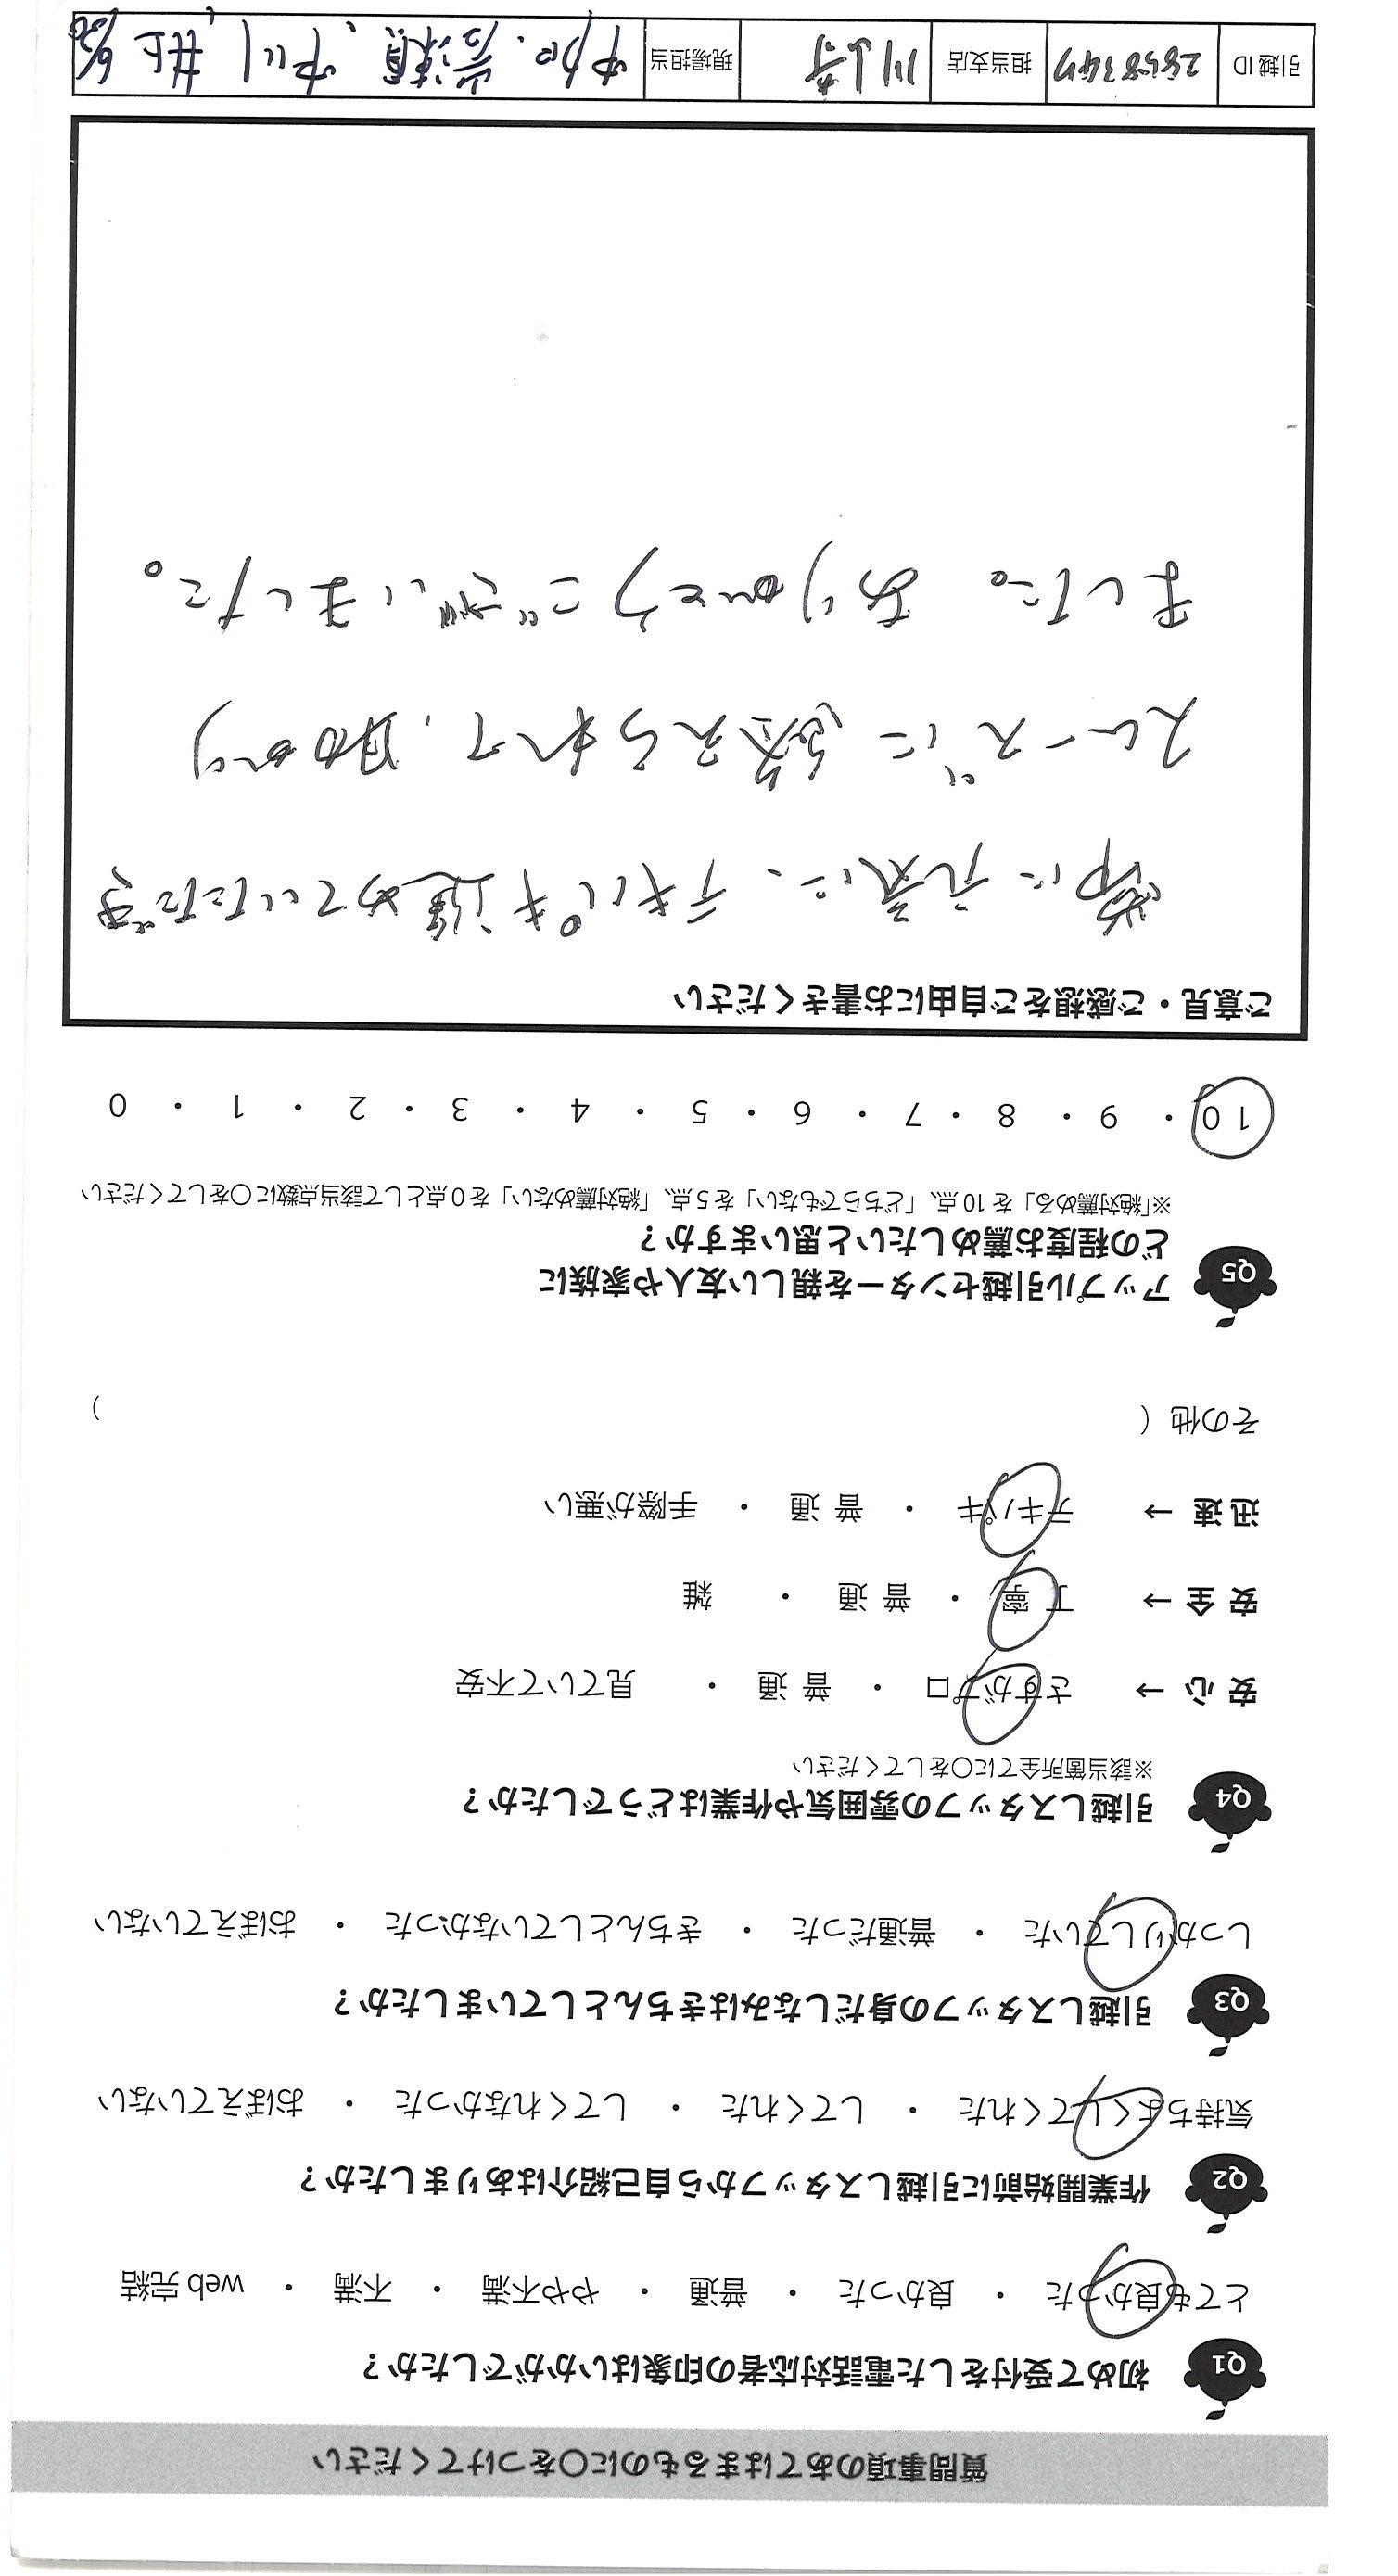 質問事項のあてはまるものに○をつけてください
Q1 初めて受付をした電話対応者の印象はいかがでしたか？
とても良かった ・ 良かった ・ 普通 ・ やや不満 ・ 不満 ・ web 完結
Q2 作業開始前に引越しスタッフから自己紹介はありましたか？
気持ちよくしてくれた ・ してくれた ・ してくれなかった ・ おぼえていない
Q3 引越しスタッフの身だしなみはきちんとしていましたか？
しっかりしていた ・ 普通だった ・ きちんとしていなかった ・ おぼえていない
Q4 引越しスタッフの雰囲気や作業はどうでしたか？
※該当箇所全てに○をしてください
安心 → さすがプロ ・ 普通 ・ 見ていて不安
安全 → 丁寧 ・ 普通 ・ 雑
迅速 → テキパキ ・ 普通 ・ 手際が悪い
その他 （ ）
Q5 アップル引越センターを親しい友人や家族に
どの程度お薦めしたいと思いますか？
※「絶対薦める」を 10 点、「どちらでもない」を 5 点、「絶対薦めない」を 0 点として該当点数に○をしてください
10 ・ 9 ・ 8 ・ 7 ・ 6 ・ 5 ・ 4 ・ 3 ・ 2 ・ 1 ・ 0
ご意見・ご感想をご自由にお書きください
常に元気に、テキパキ進めていただき
スムーズに終えられて、助かり
ました。ありがとうございました。
引越 ID 担当支店 川崎 現場担当 岩瀬、中川、井上